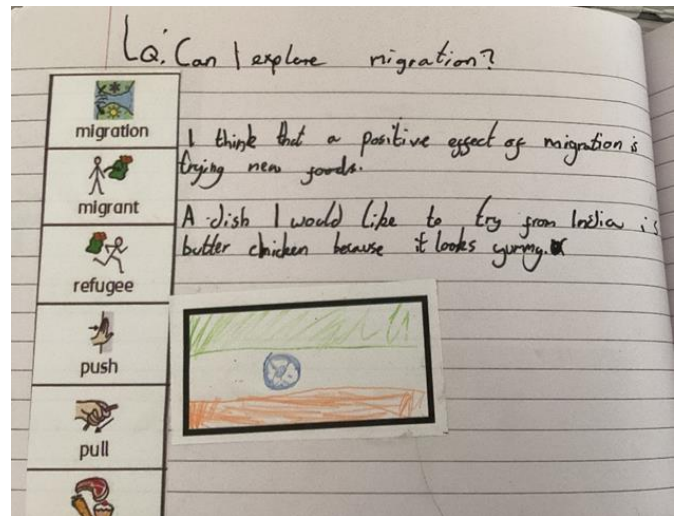 LQ: Can I explore migration?
migration
migrant
refugee
push
pull
I think that a positive effect of migration is
trying new foods.
A dish I would like to try from India is
butter chicken because it looks yummy.